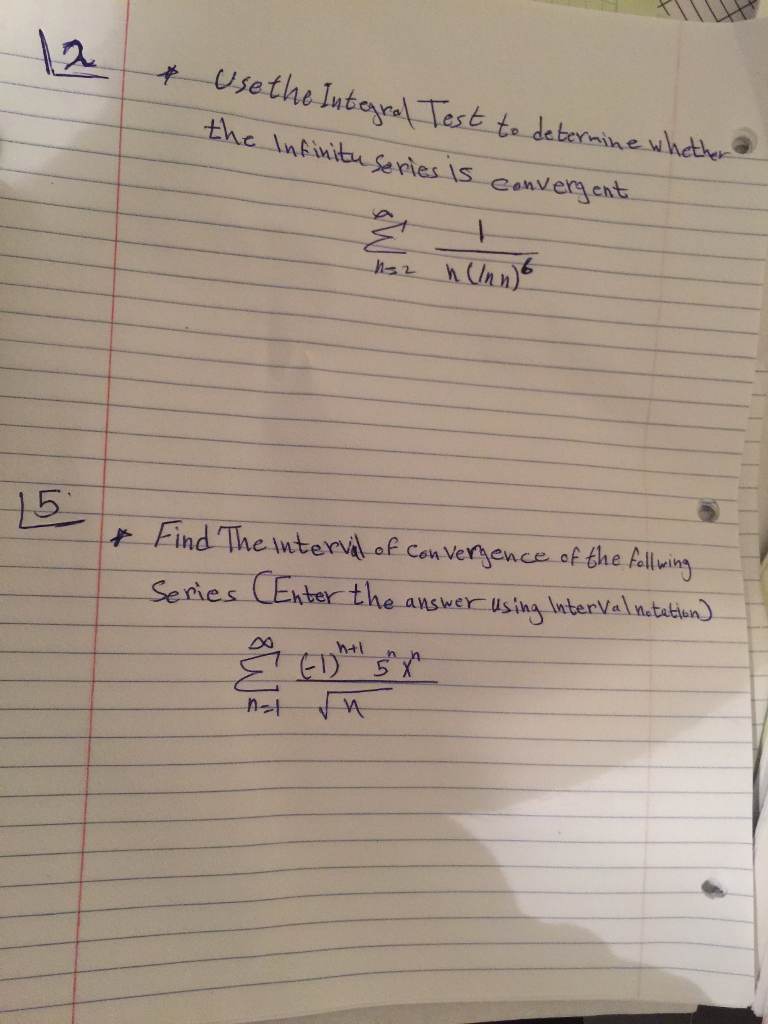 12
* Use the Integral Test to determine whether
the Infinitu Series is convergent
∞
Σ 1 / n (ln n)^6
n=2
15
* Find The interval of convergence of the follwing
Series (Enter the answer using Interval notation)
∞
Σ (-1)^{n+1} 5^n x^n / √n
n=1